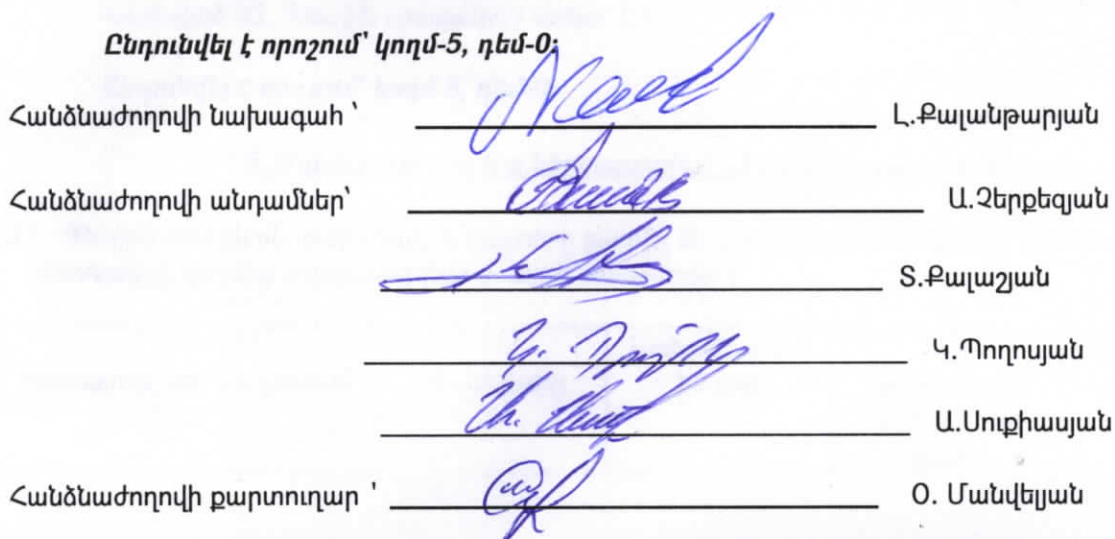 Ընդունվել է որոշում՝ կողմ-5, դեմ-0:
Հանձնաժողովի նախագահ ՝ Լ.Քալանթարյան
Հանձնաժողովի անդամներ՝ Ա.Չերքեզյան
Տ.Քալաշյան
Կ.Պողոսյան
Ա.Սուքիասյան
Հանձնաժողովի քարտուղար ՝ Օ. Մանվելյան